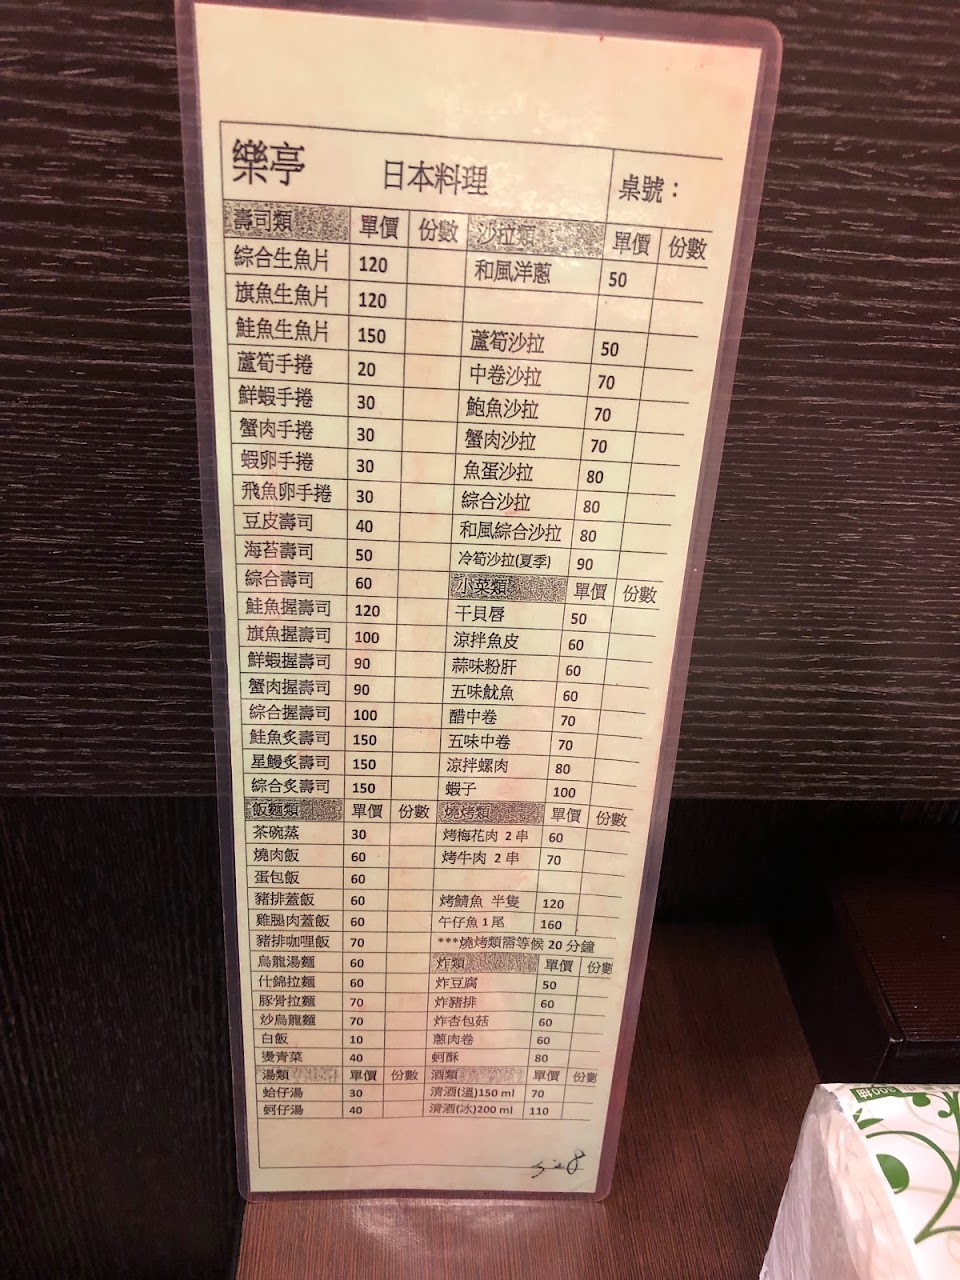 樂亭 日本料理 桌號：
壽司類 單價 份數 沙拉類 單價 份數
綜合生魚片 120 和風洋蔥 50
旗魚生魚片 120
鮭魚生魚片 150 蘆筍沙拉 50
蘆筍手捲 20 中卷沙拉 70
鮮蝦手捲 30 鮑魚沙拉 70
蟹肉手捲 30 蟹肉沙拉 70
蝦卵手捲 30 魚蛋沙拉 80
飛魚卵手捲 30 綜合沙拉 80
豆皮壽司 40 和風綜合沙拉 80
海苔壽司 50 冷筍沙拉(夏季) 90
綜合壽司 60 小菜類 單價 份數
鮭魚握壽司 120 干貝唇 50
旗魚握壽司 100 涼拌魚皮 60
鮮蝦握壽司 90 蒜味粉肝 60
蟹肉握壽司 90 五味魷魚 60
綜合握壽司 100 醋中卷 70
鮭魚炙壽司 150 五味中卷 70
星鰻炙壽司 150 涼拌螺肉 80
綜合炙壽司 150 蝦子 100
飯麵類 單價 份數 燒烤類 單價 份數
茶碗蒸 30 烤梅花肉 2 串 60
燒肉飯 60 烤牛肉 2 串 70
蛋包飯 60
豬排蓋飯 60 烤鯖魚 半隻 120
雞腿肉蓋飯 60 午仔魚 1 尾 160
豬排咖哩飯 70 ***燒烤類需等候 20 分鐘
烏龍湯麵 60 炸類 單價 份數
什錦拉麵 60 炸豆腐 50
豚骨拉麵 70 炸豬排 60
炒烏龍麵 70 炸杏包菇 60
白飯 10 蔥肉卷 60
燙青菜 40 蚵酥 80
湯類 單價 份數 酒類 單價 份數
蛤仔湯 30 清酒(溫)150 ml 70
蚵仔湯 40 清酒(冰)200 ml 110